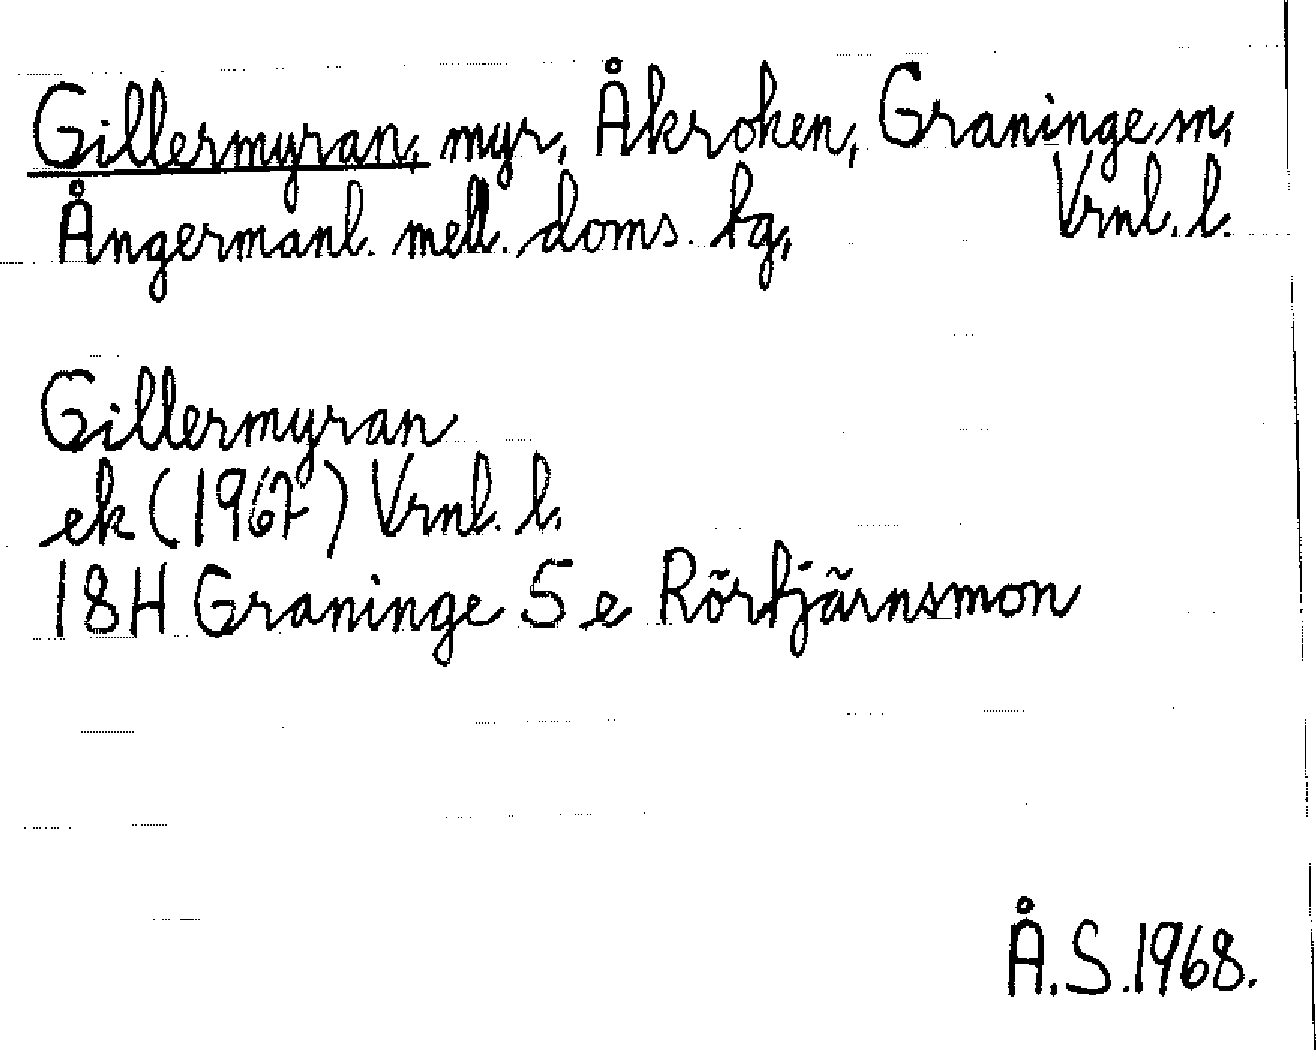 Gillermyran, myr, Åkroken, Graninge sn,
Ångermanl. mell. doms. tg, Vrnl. l.
Gillermyran
ek (1967) Vrnl. l.
18H Graninge 5 e Rörtjärnsmon
Å.S.1968.